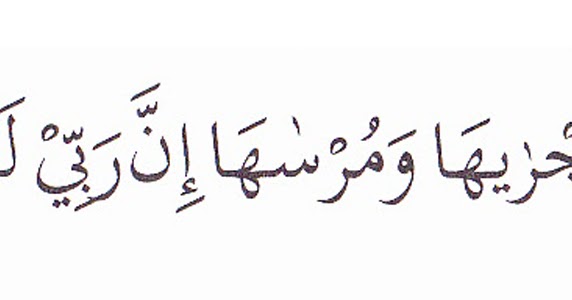 جْرٰىهَا وَمُرْسٰهَا إِنَّ رَبِّيْ لَ